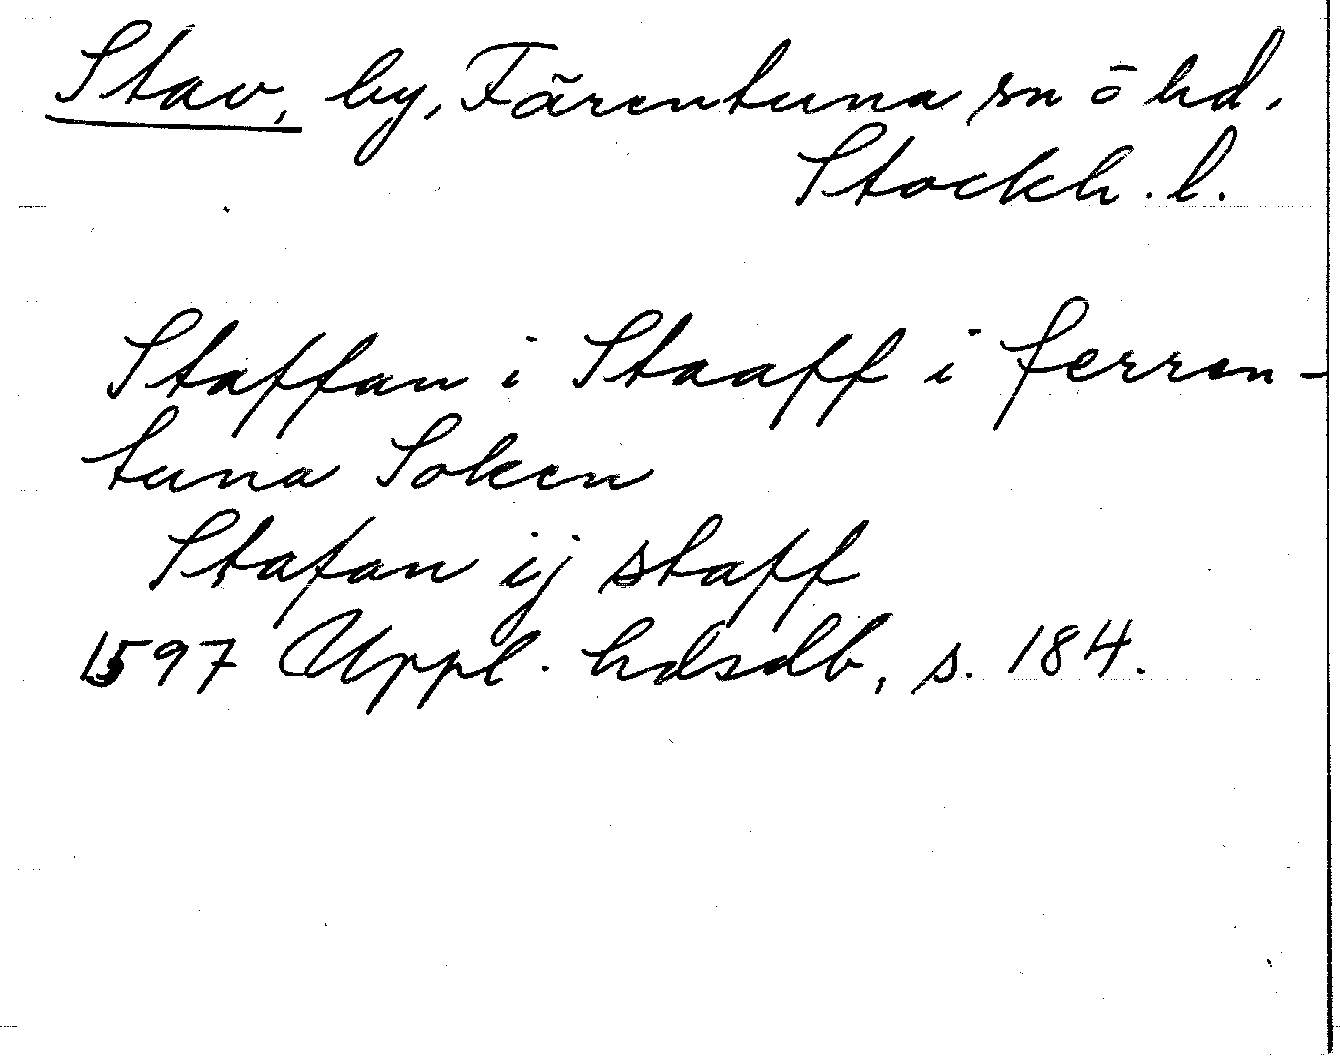 Stav, by, Färentuna sn o hd,
Stockh. l.
Staffan i Staaff i ferren-
tuna Soken
Stafan ij staff
1597 Uppl. hdsdb, s. 184.